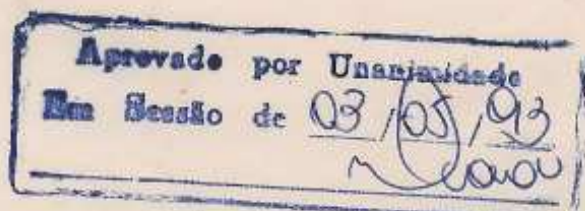 Aprovado por Unanimidade
Em Sessão de 03/05/93